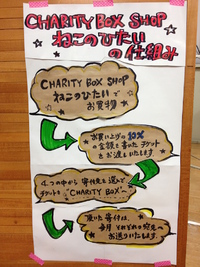 CHARITY BOX SHOP
ねこのひたい
の仕組み
CHARITY BOX SHOP
ねこのひたいで
お買物
お買い上げの10%
の金額を書いたチケット
をお渡しいたします
4つの中から寄付先を選んで
チケットを"CHARITY BOX"へ
頂いた寄付は、
毎月それぞれの宛先へ
お送りいたします。